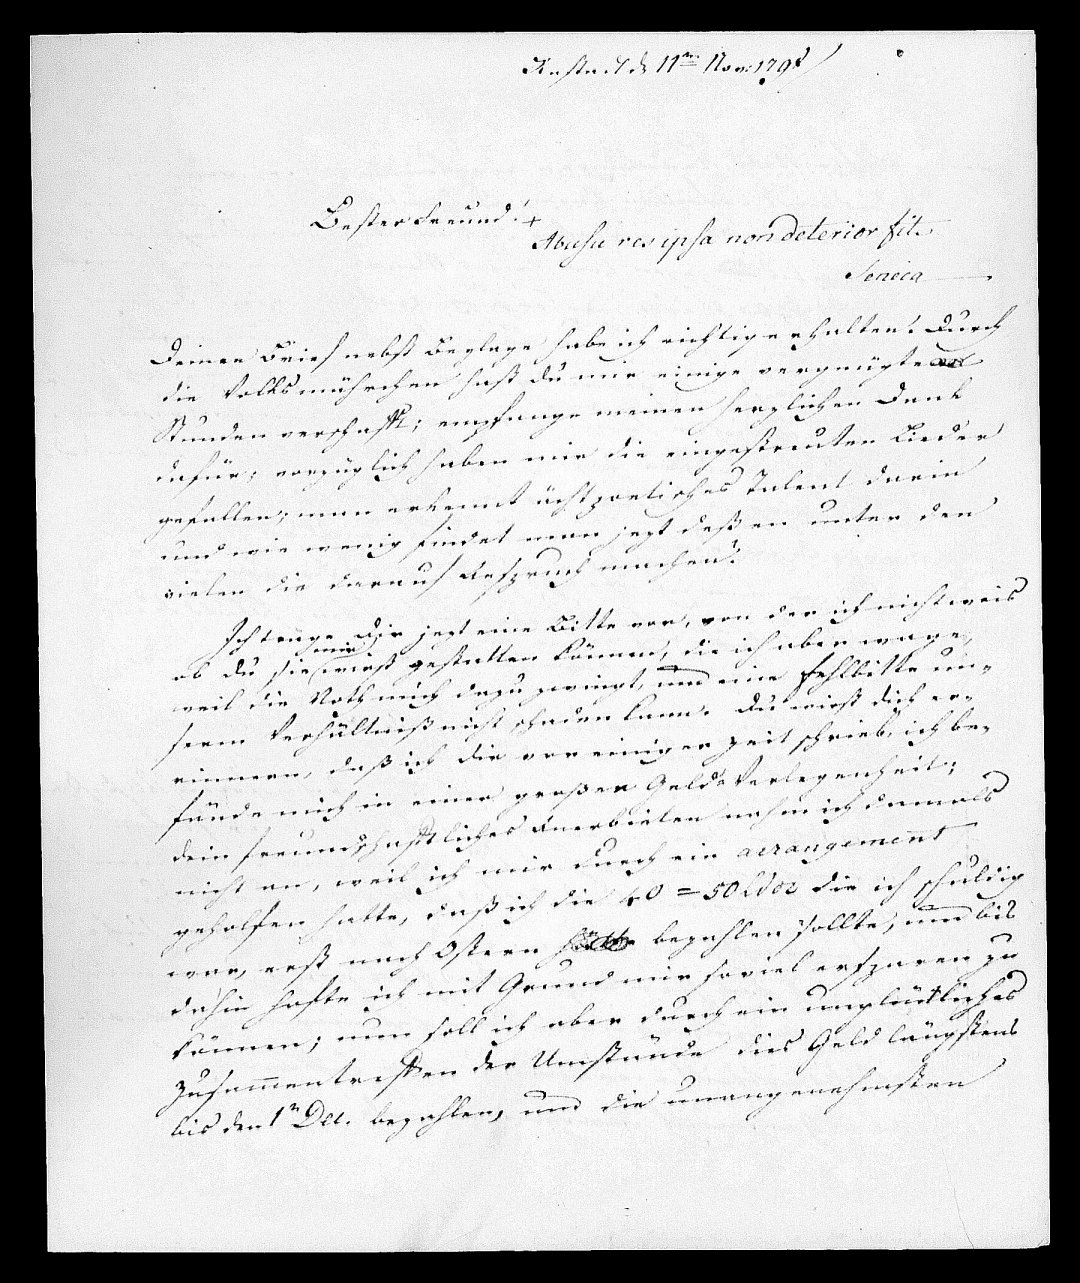 Rastadt d. 11ten Nov. 1798
Bester Freund! +
Abusu res ipsa non deterior fit.
Seneca
Deinen Brief nebst Beylage habe ich richtig erhalten. Durch
die Volksmährchen hast du mir einige vergnügte
Stunden verschafft; empfange meinen herzlichen Dank
dafür; vorzüglich haben mir die eingestreuten Lieder
gefallen; man erkennt ächt poetisches Talent darin
und wie wenig findet man jezt dessen unter den
vielen die darauf Anspruch machen!
Ich trage Dir jezt eine Bitte vor, von der ich nicht weis
ob du sie mir wirst gestatten können, die ich aber wage,
weil die Noth mich dazu zwingt, und eine Fehlbitte un-
serm Verhältniß nicht schaden kann. Du wirst dich er-
innern, daß ich dir vor einiger Zeit schrieb, ich be-
fände mich in einer großen Geld Verlegenheit;
dein freundschaftliches Anerbieten nahm ich damals
nicht an, weil ich mir durch ein arrangement
geholfen hatte, daß ich die 40 = 50 Ldor die ich schuldig
war, erst nach Ostern bezahlen sollte, und bis
dahin hofte ich mit Grund mir soviel ersparen zu
können; nun soll ich aber durch ein unglückliches
Zusammentreffen der Umstände dies Geld längstens
bis den 1n Dec. bezahlen, und die unangenehmsten